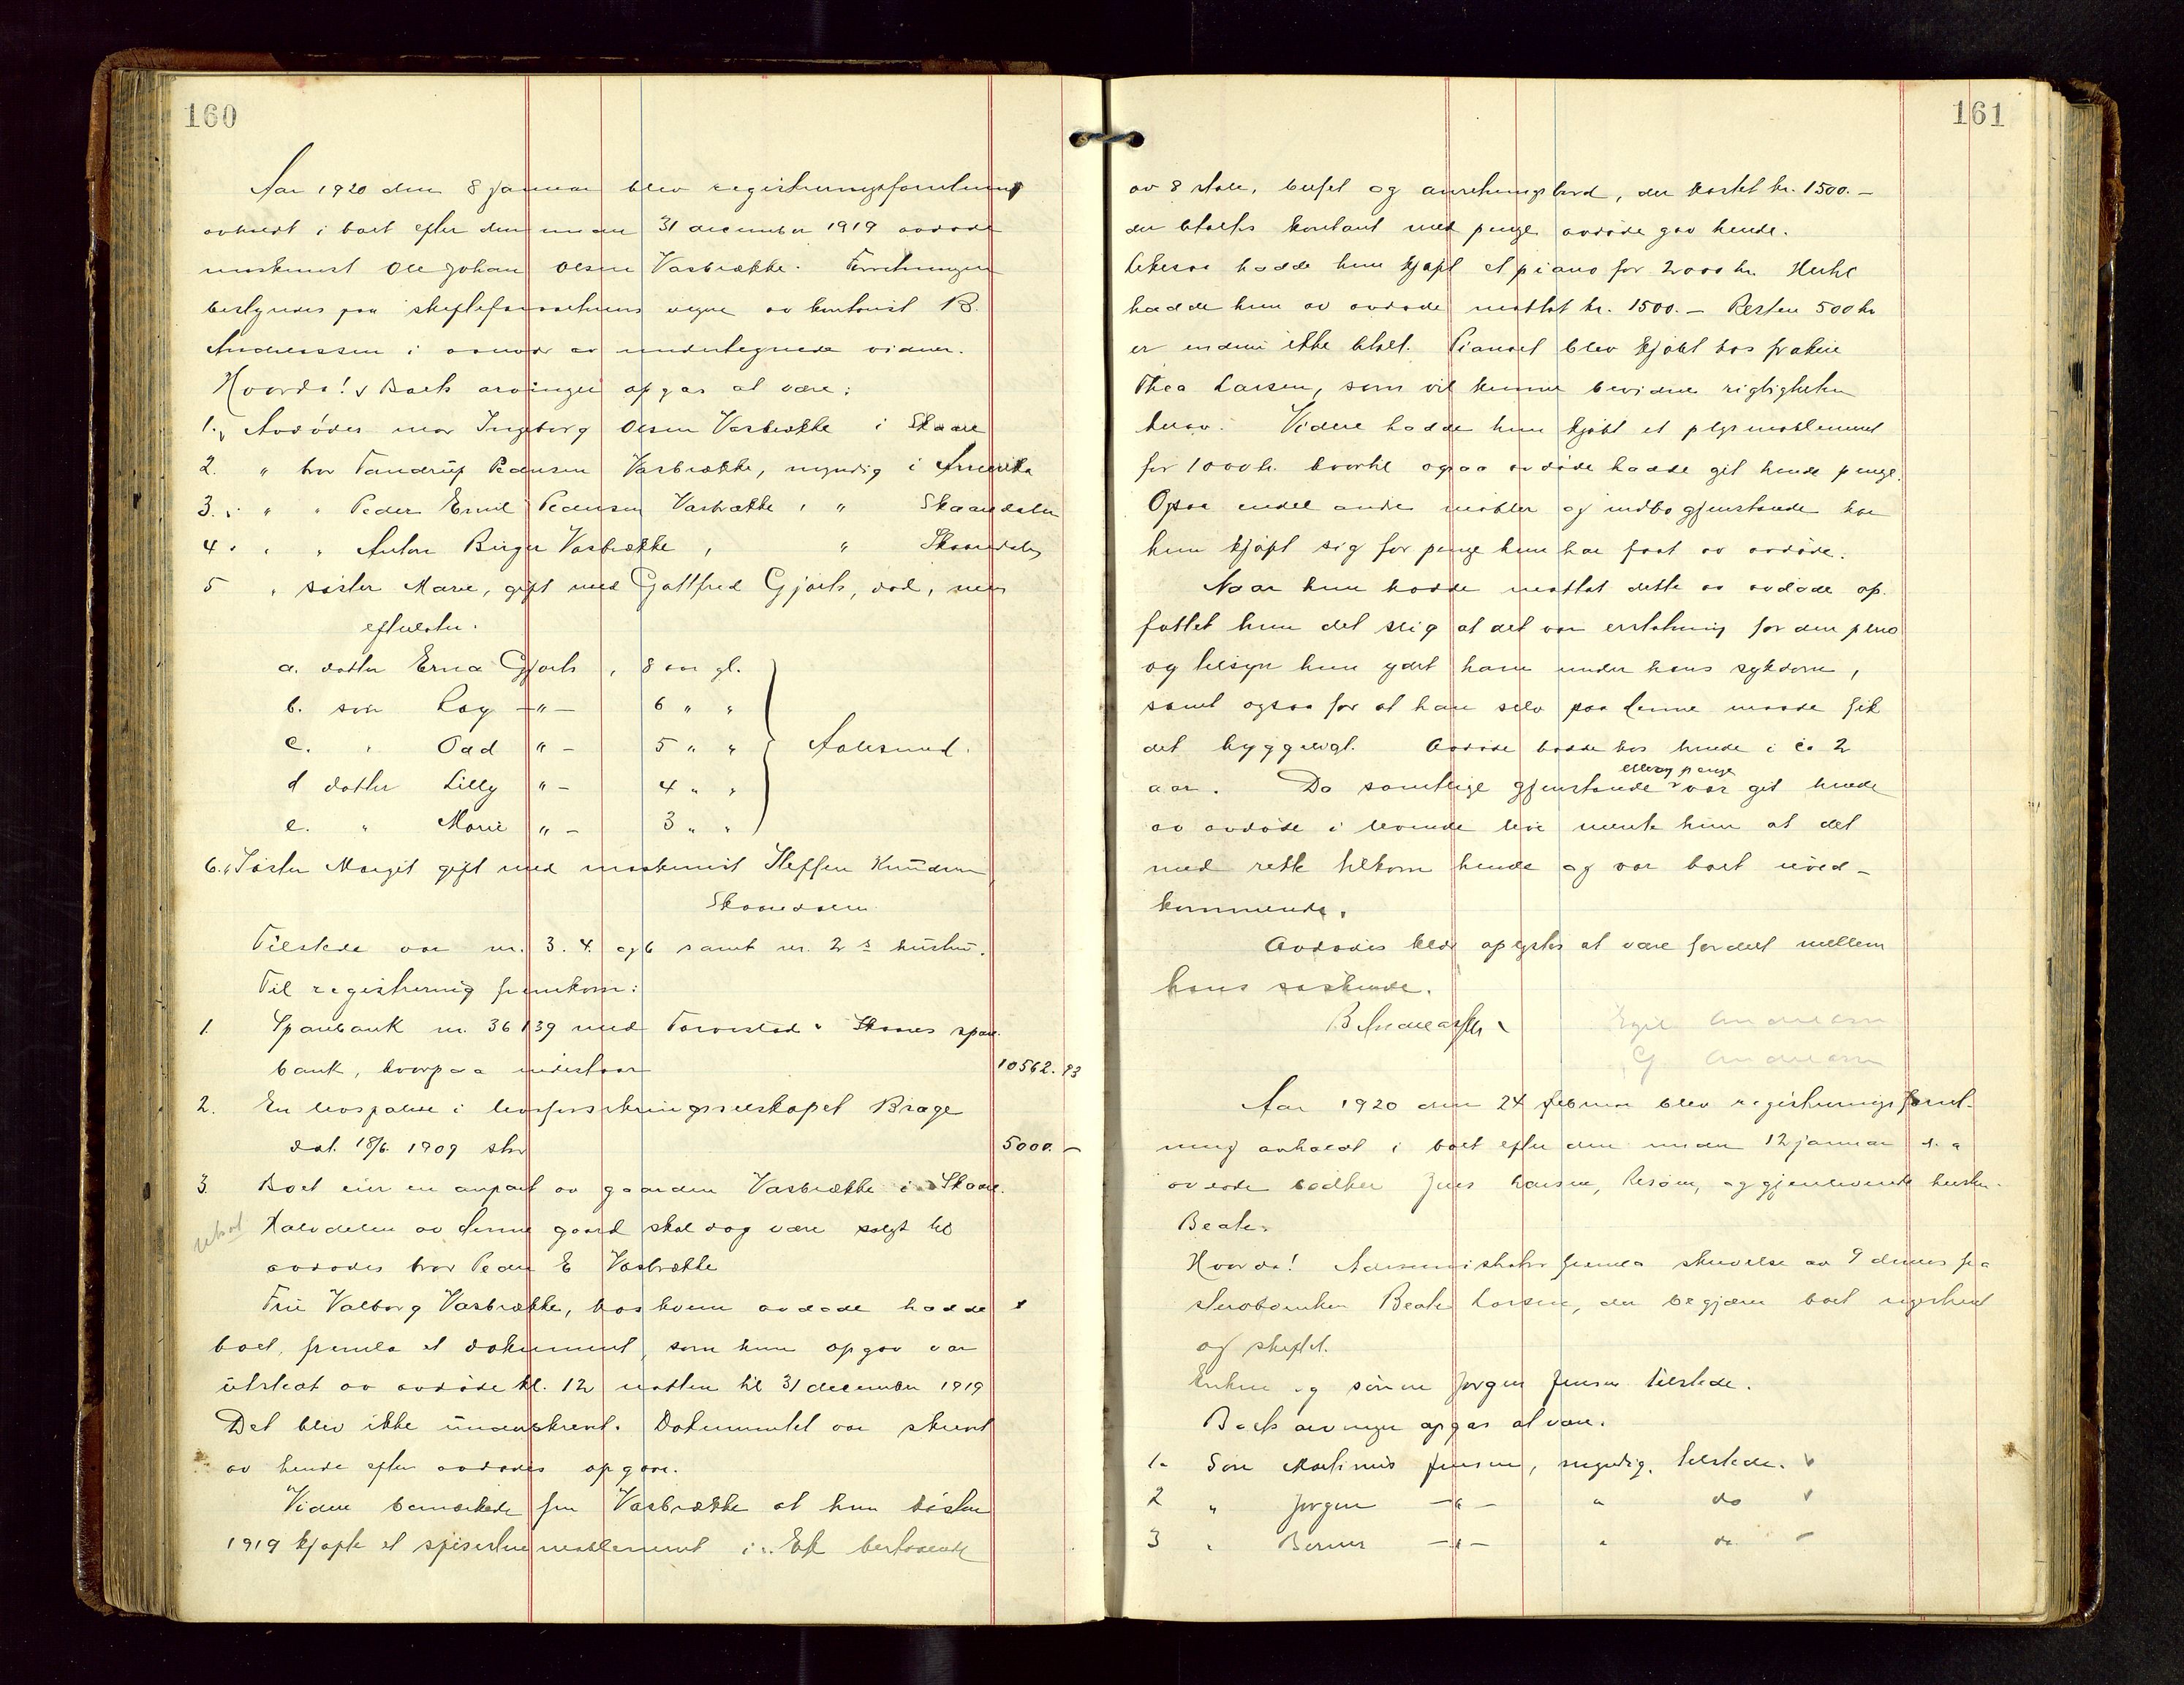 160
Aar 1920 den 8 januar blev registreringsforretning
avholdt i boet efter den under 31 december 1919 avdøde
maskinist Ole Johan Olsen Vasbrække. Forretningen
bestyredes paa skifteforvalterens vegne av kontorist B.
Andreassen i overvær av undertegnede vidner.
Hvorda! Boets arvinger opgas at være:
1. Avdødes mor Ingeborg Olsen Vasbrække i Skaare
2. " bror Tandrup Pedersen Vasbrække, myndig i Amerika
3. " " Peder Emil Pedersen Vasbrække, " Skaaredalen
4. " " Anton Birger Vasbrække, " Skaaredalen
5 " søster Marie, gift med Gottfred Gjørts, død, men
efterlater.
a. datter Erna Gjørts, 8 aar gl.
b. søn Roy -"- 6 " "
c. " Odd "- 5 " " Aalesund.
d datter Lilly "- 4 " "
e. " Marie "- 3 " "
6. Søster Margit gift med maskinist Steffen Knudsen
Skaaredalen
Tilstede var nr. 3. 4. og 6 samt nr. 2s hustru.
Til registrering fremkom:
1. Sparebank nr. 36139 med Torvestad & Skaares spare
bank, hvorpaa indestaar 10562.93
2. En livspolise i livsforsikringsselskapet Brage
dat. 18/6. 1909 stor 5000.-
3. Boet eier en anpart av gaarden Vasbrække i Skaare.
Halvdelen av denne gaard skal dog være solgt til
avdødes bror Peder E Vasbrække
Fru Valborg Vasbrække, hos hvem avdøde hadde
boet, fremla et dokument, som hun opgav var
utstedt av avdøde kl. 12 natten til 31 december 1919
Det blev ikke underskrevt. Dokumentet var skrevt
av hende efter avdødes opgave.
Videre bemerkede fru Vasbrække at hun høsten
1919 kjøpte et spisestuemøblement i Ek bestaaende
161
av 8 stole, buffet og anretningsbord, der kostet kr. 1500.-
der betaltes kontant med penge avdøde gav hende.
Likesaa hadde hun kjøpt et piano for 2000 kr. Hertil
hadde hun av avdøde mottat kr. 1500.- Resten 500 kr
er endnu ikke betalt. Pianoet blev kjøbt hos frøken
Thea Larsen, som vil kunne bevidne rigtigheten
herav. Videre hadde hun kjøbt et plysmøblement
for 1000 kr. hvortil ogsaa avdøde hadde git hende penge.
Ogsaa endel andre møbler og indbogjenstande har
hun kjøpt sig for penge hun har faat av avdøde.
Naar hun hadde mottat dette av avdøde op-
fattet hun det slig at det var erstatning for den pleie
og tilsyn hun ydet ham under hans sykdom,
samt ogsaa for at han selv paa denne maade fik
det hyggeligt. Avdøde bodde hos hende i ca 2
aar. Da samtlige gjenstande eller penge var git hende
av avdøde i levende live mente hun at det
med rette tilkom hende og var boet uved-
kommende.
Avdødes klær oplystes at være fordelt mellem
hans søskende.
B Andreassen Egil Andreassen
G. Andreassen
Aar 1920 den 24 februar blev registreringsforret-
ning avholdt i boet efter den under 12 januar d. a
avdøde bødker Jens Larsen, Risøen, og gjenlevende hustru
Beate.
Hvorda! Administrator fremla skrivelse av 9 dennes fra
stervboenken Beate Larsen, der begjærer boet registrert
og skiftet.
Enken og sønnen Jørgen Jensen tilstede.
Boets arvinger opgas at være.
1. Søn Martinus Jensen, myndig, tilstede.
2 " Jørgen -"- " do
3 " Berner -"- " do